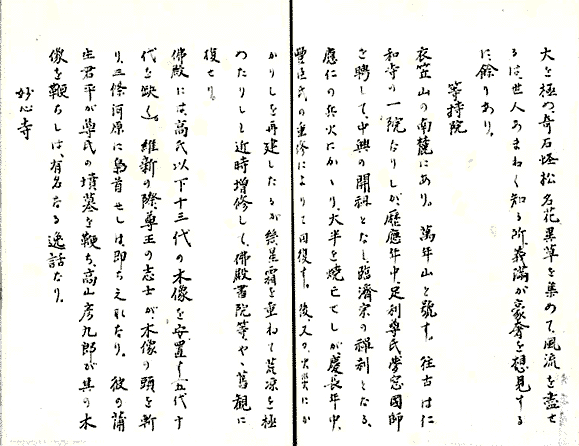 大を極め、奇石怪松名花異草を集めて、風流を盡せ
るは、世人あまねく知る所、義滿が豪奢を想見する
に餘りあり。
等持院
衣笠山の南麓にあり。萬年山と號す。往古は仁
和寺の一院なりしが、歴應年中、足利尊氏、夢窓國師
を聘して、中興の開祖となし、臨濟宗の禅刹となる、
應仁の兵火にかゝり、大半を燒亡せしが、慶長年中、
豐臣氏の重修によりて回復す。後又々火災にか
かりしを再建したるが、幾星霜を重ねて荒凉を極
めたりしを、近時増修して、佛殿書院等、やゝ舊觀に
復せり。
佛殿には高氏以下十三代の木像を安置す五代十
代を缺く。維新の際、尊王の志士が、木像の頭を斬
り、三條河原に梟首せしは、即ちこれなり。彼の蒲
生君平が、尊氏の墳墓を鞭ち、高山彦九郎が、其の木
像を鞭ちしは、有名なる逸話なり。
妙心寺